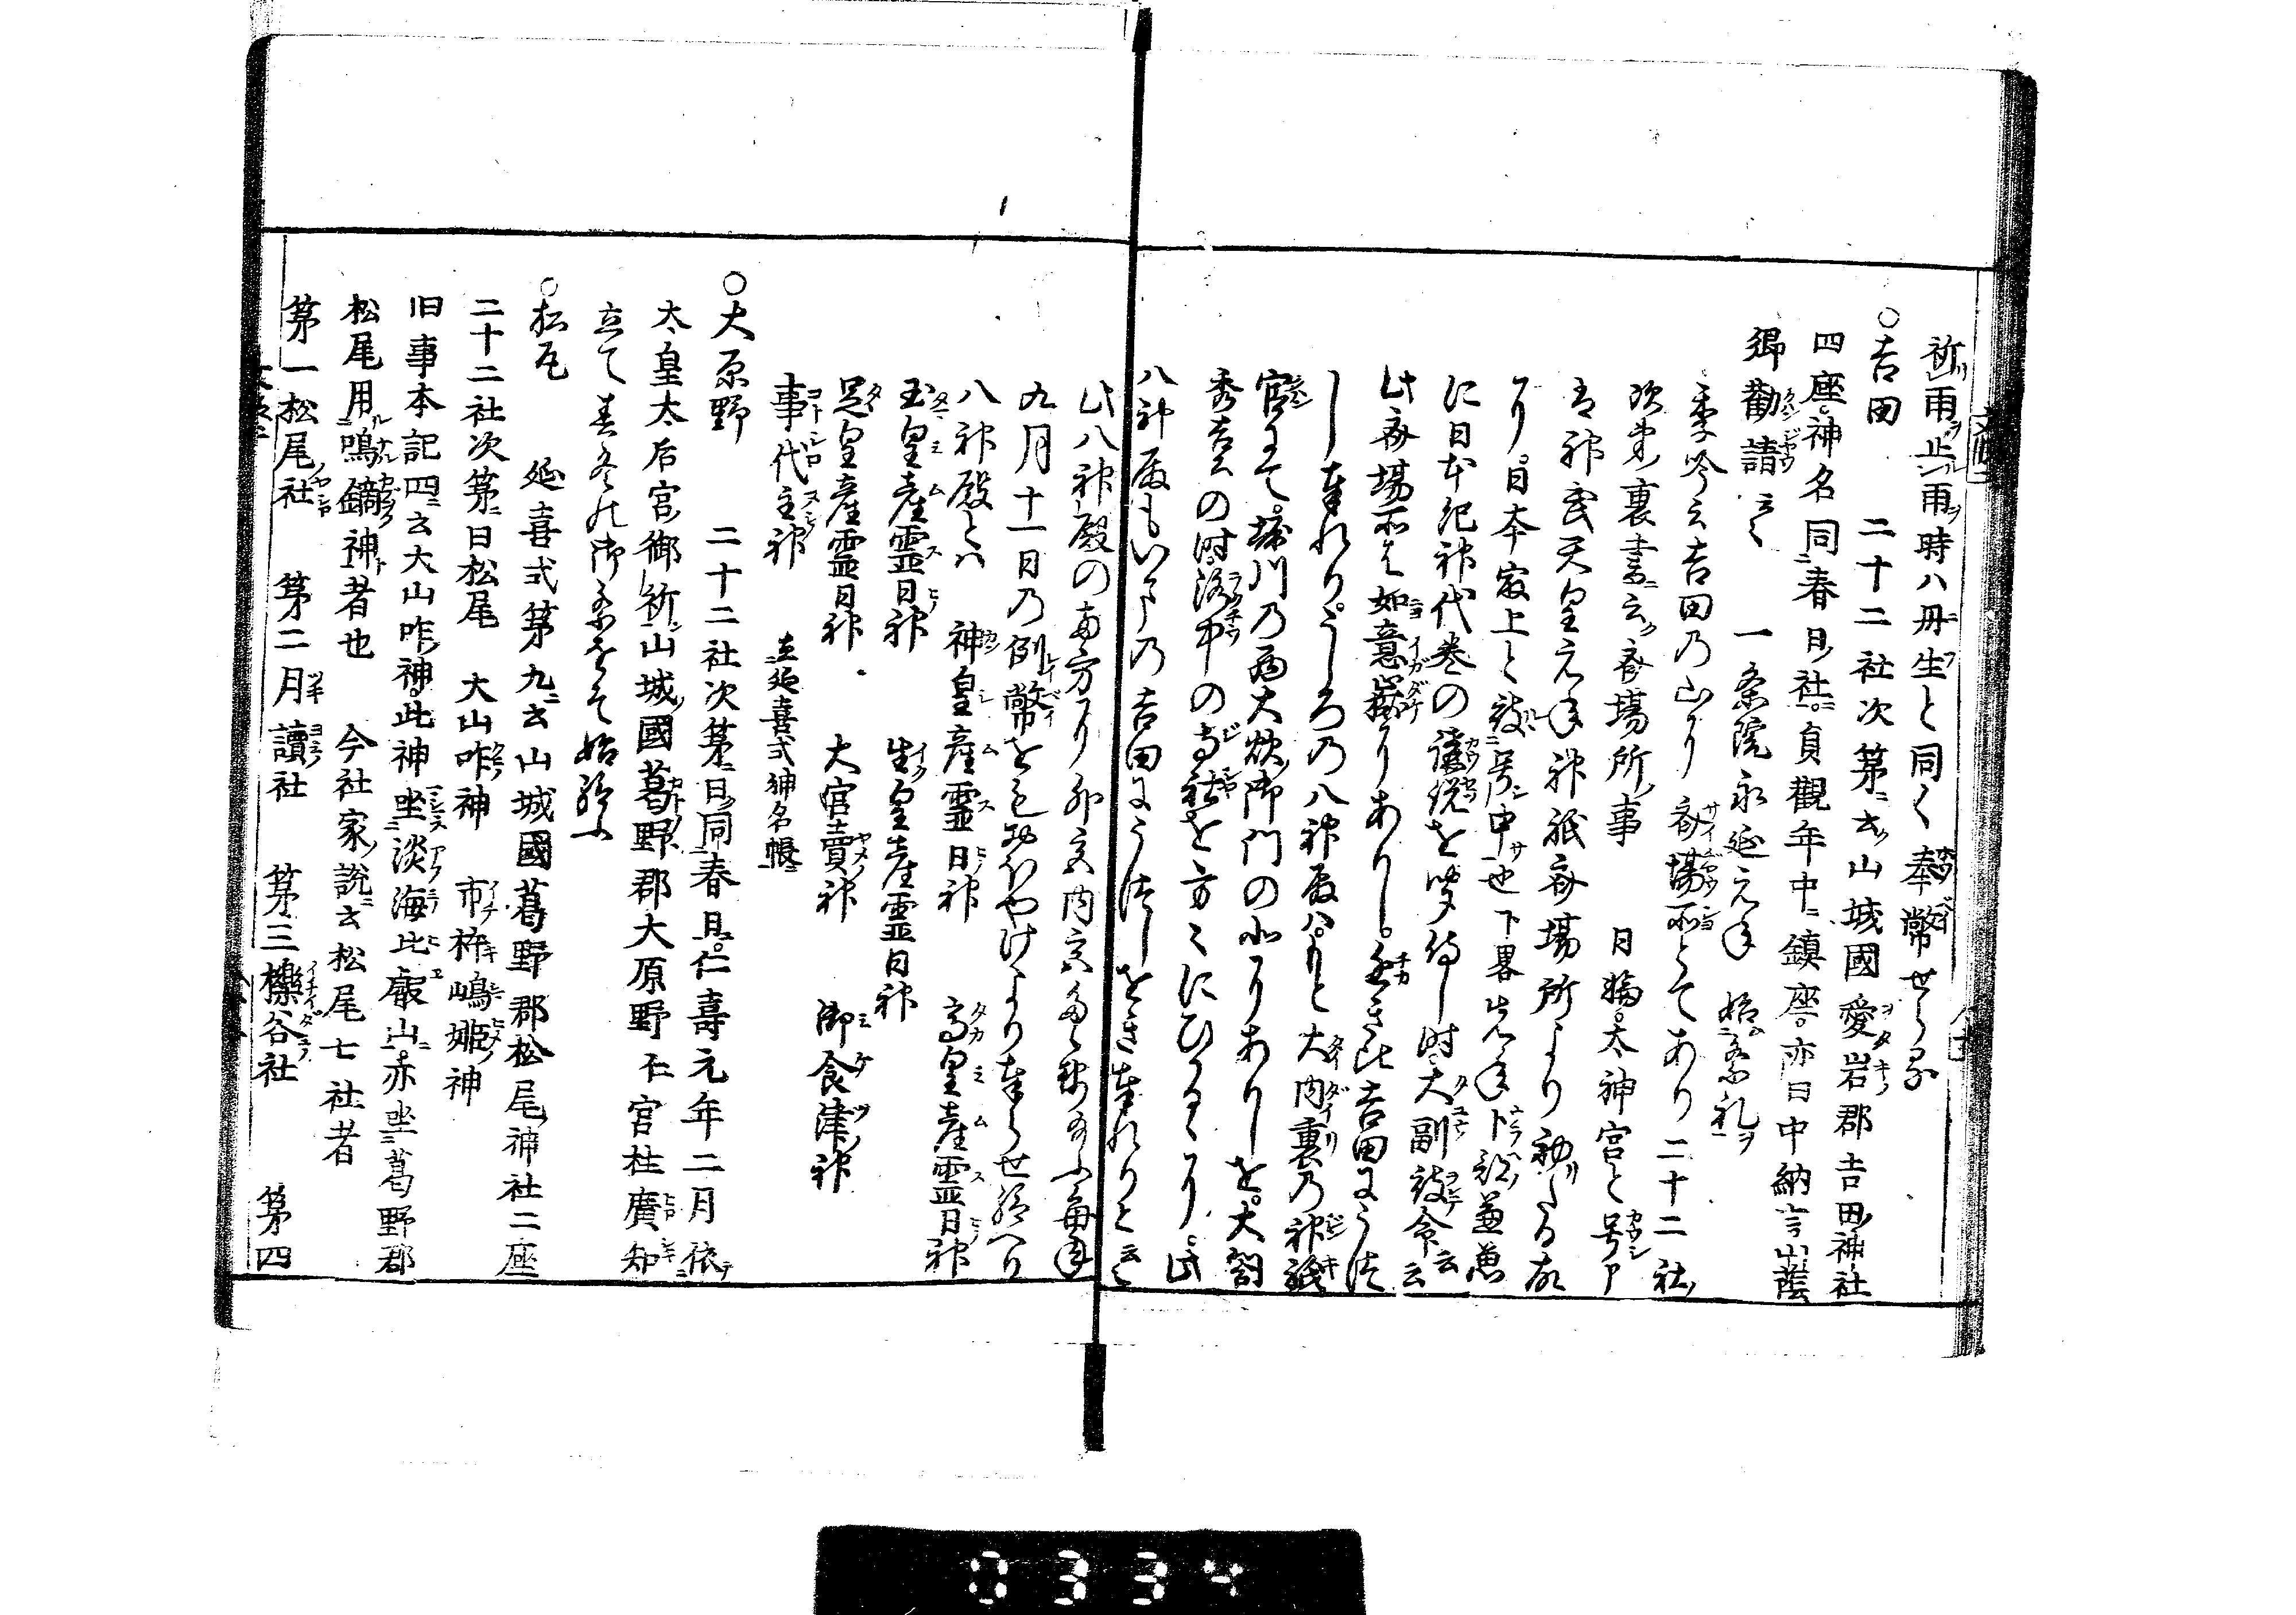 祈雨止雨時ハ丹生と同く奉幣せらる
○吉田 二十二社次第ニ云山城國愛宕郡吉田神社
四座神名同春日社貞觀年中鎮座亦曰中納言山蔭
卿勧請云々 一条院永延元年始祭礼ヲ
季吟云吉田乃山に斎場所とてあり二十二社
次第裏書ニ云斎場所事 日輪太神宮と号ﾉ
神武天皇元年神祇斎場所より初たる故
なり日本最上と號号中也下畧先年卜部兼
に日本紀神代巻の講釈を聞侍し時大副 令云云
此斎場所は如意嶽にありし近き比吉田にうつ
し奉れりうしろの八神殿ハもと大内裏乃神祇
官にて堀川乃西大炊御門の北にありしを大閤
秀吉の時洛中の寺社を方々にひかるゝ此
八神殿もいまの吉田にうつしをき奉れりと云々
此八神殿の両方に外宮内宮 毎年
九月十一日乃例幣を おほやけより奉らせ給へり
八神殿とハ 神皇産霊日神 高皇産霊日神
玉皇産霊日神 生皇産霊日神
足皇産霊日神 大宮賣神 御食津神
事代主神 在延喜式神名帳
○大原野 二十二社次第ニ曰同春日仁壽元年二月依テ
太皇太后宮御祈山城國葛野郡大原野仁宮柱廣知
立て春冬の御祭をそ始給ふ
○松尾 延喜式第九ニ云山城國葛野郡松尾神社二座
二十二社次第ニ曰松尾 大山咋神 市杵嶋姫神
旧事本記四ニ云大山咋神此神坐淡海比叡山亦坐葛野郡
松尾用鳴鏑神者也 今社家説云松尾七社者
第一松尾社 第二月讀社 第三櫟谷社 第四